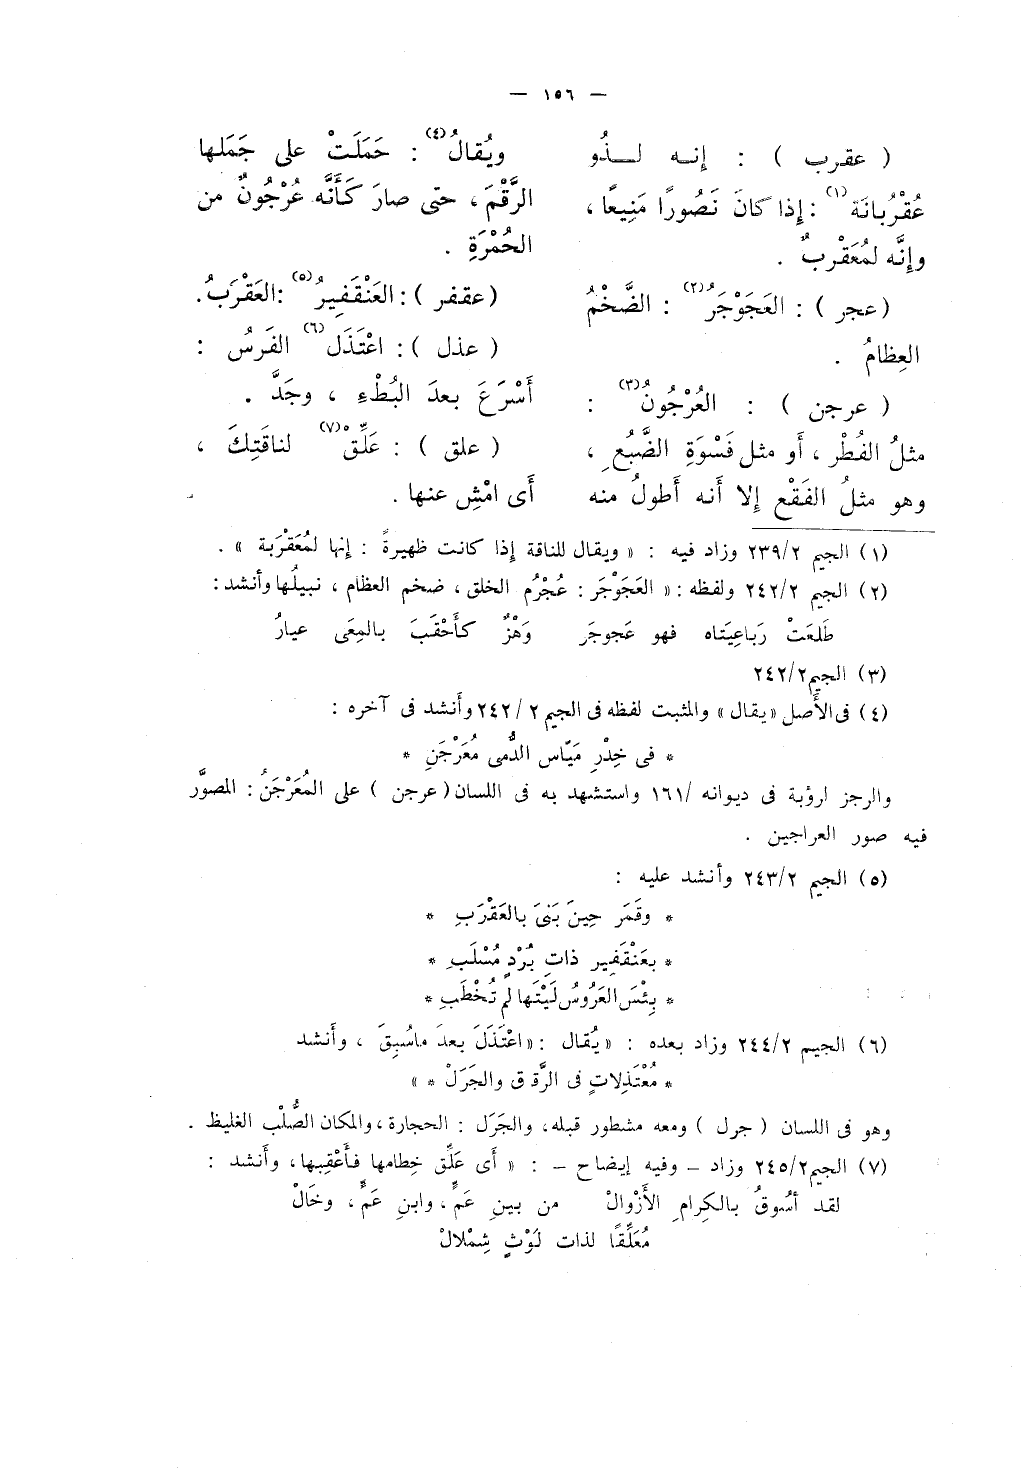 — ١٥٦ —
( عقرب ) : إنه لــذُو
عُقْرُبانَة(١) : إذا كانَ نَصُورًا مَنِيعًا ،
وإنَّه لمُعَقْربٌ .
( عجر ) : العَجَوْجَرُ(٢) : الضَّخْمُ
العِظامُ .
( عرجن ) : العُرْجُونُ(٣) :
مثلُ الفُطْر ، أَو مثل فَسْوَةِ الضَّبُعِ ،
وهو مثلُ الفَقْع إلا أَنه أَطولُ منه
ويُقالُ(٤) : حَمَلَتْ على جَمَلها
الرَّقْمَ ، حتى صارَ كَأَنَّه عُرْجُونٌ من
الحُمْرَةِ .
( عقفر ) : العَنْقَفِيرُ(٥) : العَقْرَبُ .
( عذل ) : اعْتَذَل(٦) الفَرَسُ :
أَسْرَعَ بعدَ البُطْءِ ، وجَدَّ .
( علق ) : عَلِّقْ(٧) لناقَتِكَ ،
أَى امْشِ عنها .
(١) الجيم ٢٣٩/٢ وزاد فيه : « ويقال للناقة إذا كانت ظهيرةً : إنها لمُعَقْرَبة » .
(٢) الجيم ٢٤٢/٢ ولفظه : « العَجَوْجَر : عُجْرُم الخلق ، ضخم العظام ، نبيلُها وأنشد :
طَلعَتْ رَباعِيَتاه فهو عَجوجَر وَهْزٌ كأَحْقَبَ بالمِعَى عيارُ
(٣) الجيم ٢٤٢/٢
(٤) فى الأَصل « يقال » والمثبت لفظه فى الجيم ٢٤٢/٢ وأَنشد فى آخره :
* فى خِدْرِ مَيّاس الدُّمى مُعَرْجَنِ *
والرجز لرؤبة فى ديوانه /١٦١ واستشهد به فى اللسان ( عرجن ) على المُعَرْجَنُ : المصوَّر
فيه صور العراجين .
(٥) الجيم ٢٤٣/٢ وأنشد عليه :
* وقَمَر حِينَ بَنَى بالعَقْرَبِ *
* بعَنْقَفِير ذاتِ بُرْدٍ مُسْلَبِ *
* بِئْسَ العَرُوسُ لَيْتَها لم تُخْطَبِ *
(٦) الجيم ٢٤٤/٢ وزاد بعده : « يُقال : « اعْتَذَلَ بعدَ ماسُبِقَ ، وأَنشد
* مُعْتَذِلاتٍ فى الرَّقَق والجَرَلْ * »
وهو فى اللسان ( جرل ) ومعه مشطور قبله، والجَرَل : الحجارة ، والمكان الصُّلْب الغليظ .
(٧) الجيم ٢٤٥/٢ وزاد – وفيه إيضاح – : « أَى عَلِّق خِطامها فأَعْقِبها، وأَنشد :
لقد أسُوقُ بالكِرامِ الأَزْوالْ من بينِ عَمٍّ ، وابنِ عَمٍّ ، وخَالْ
مُعَلِّقًا لذات لَوْثٍ شِمْلالْ